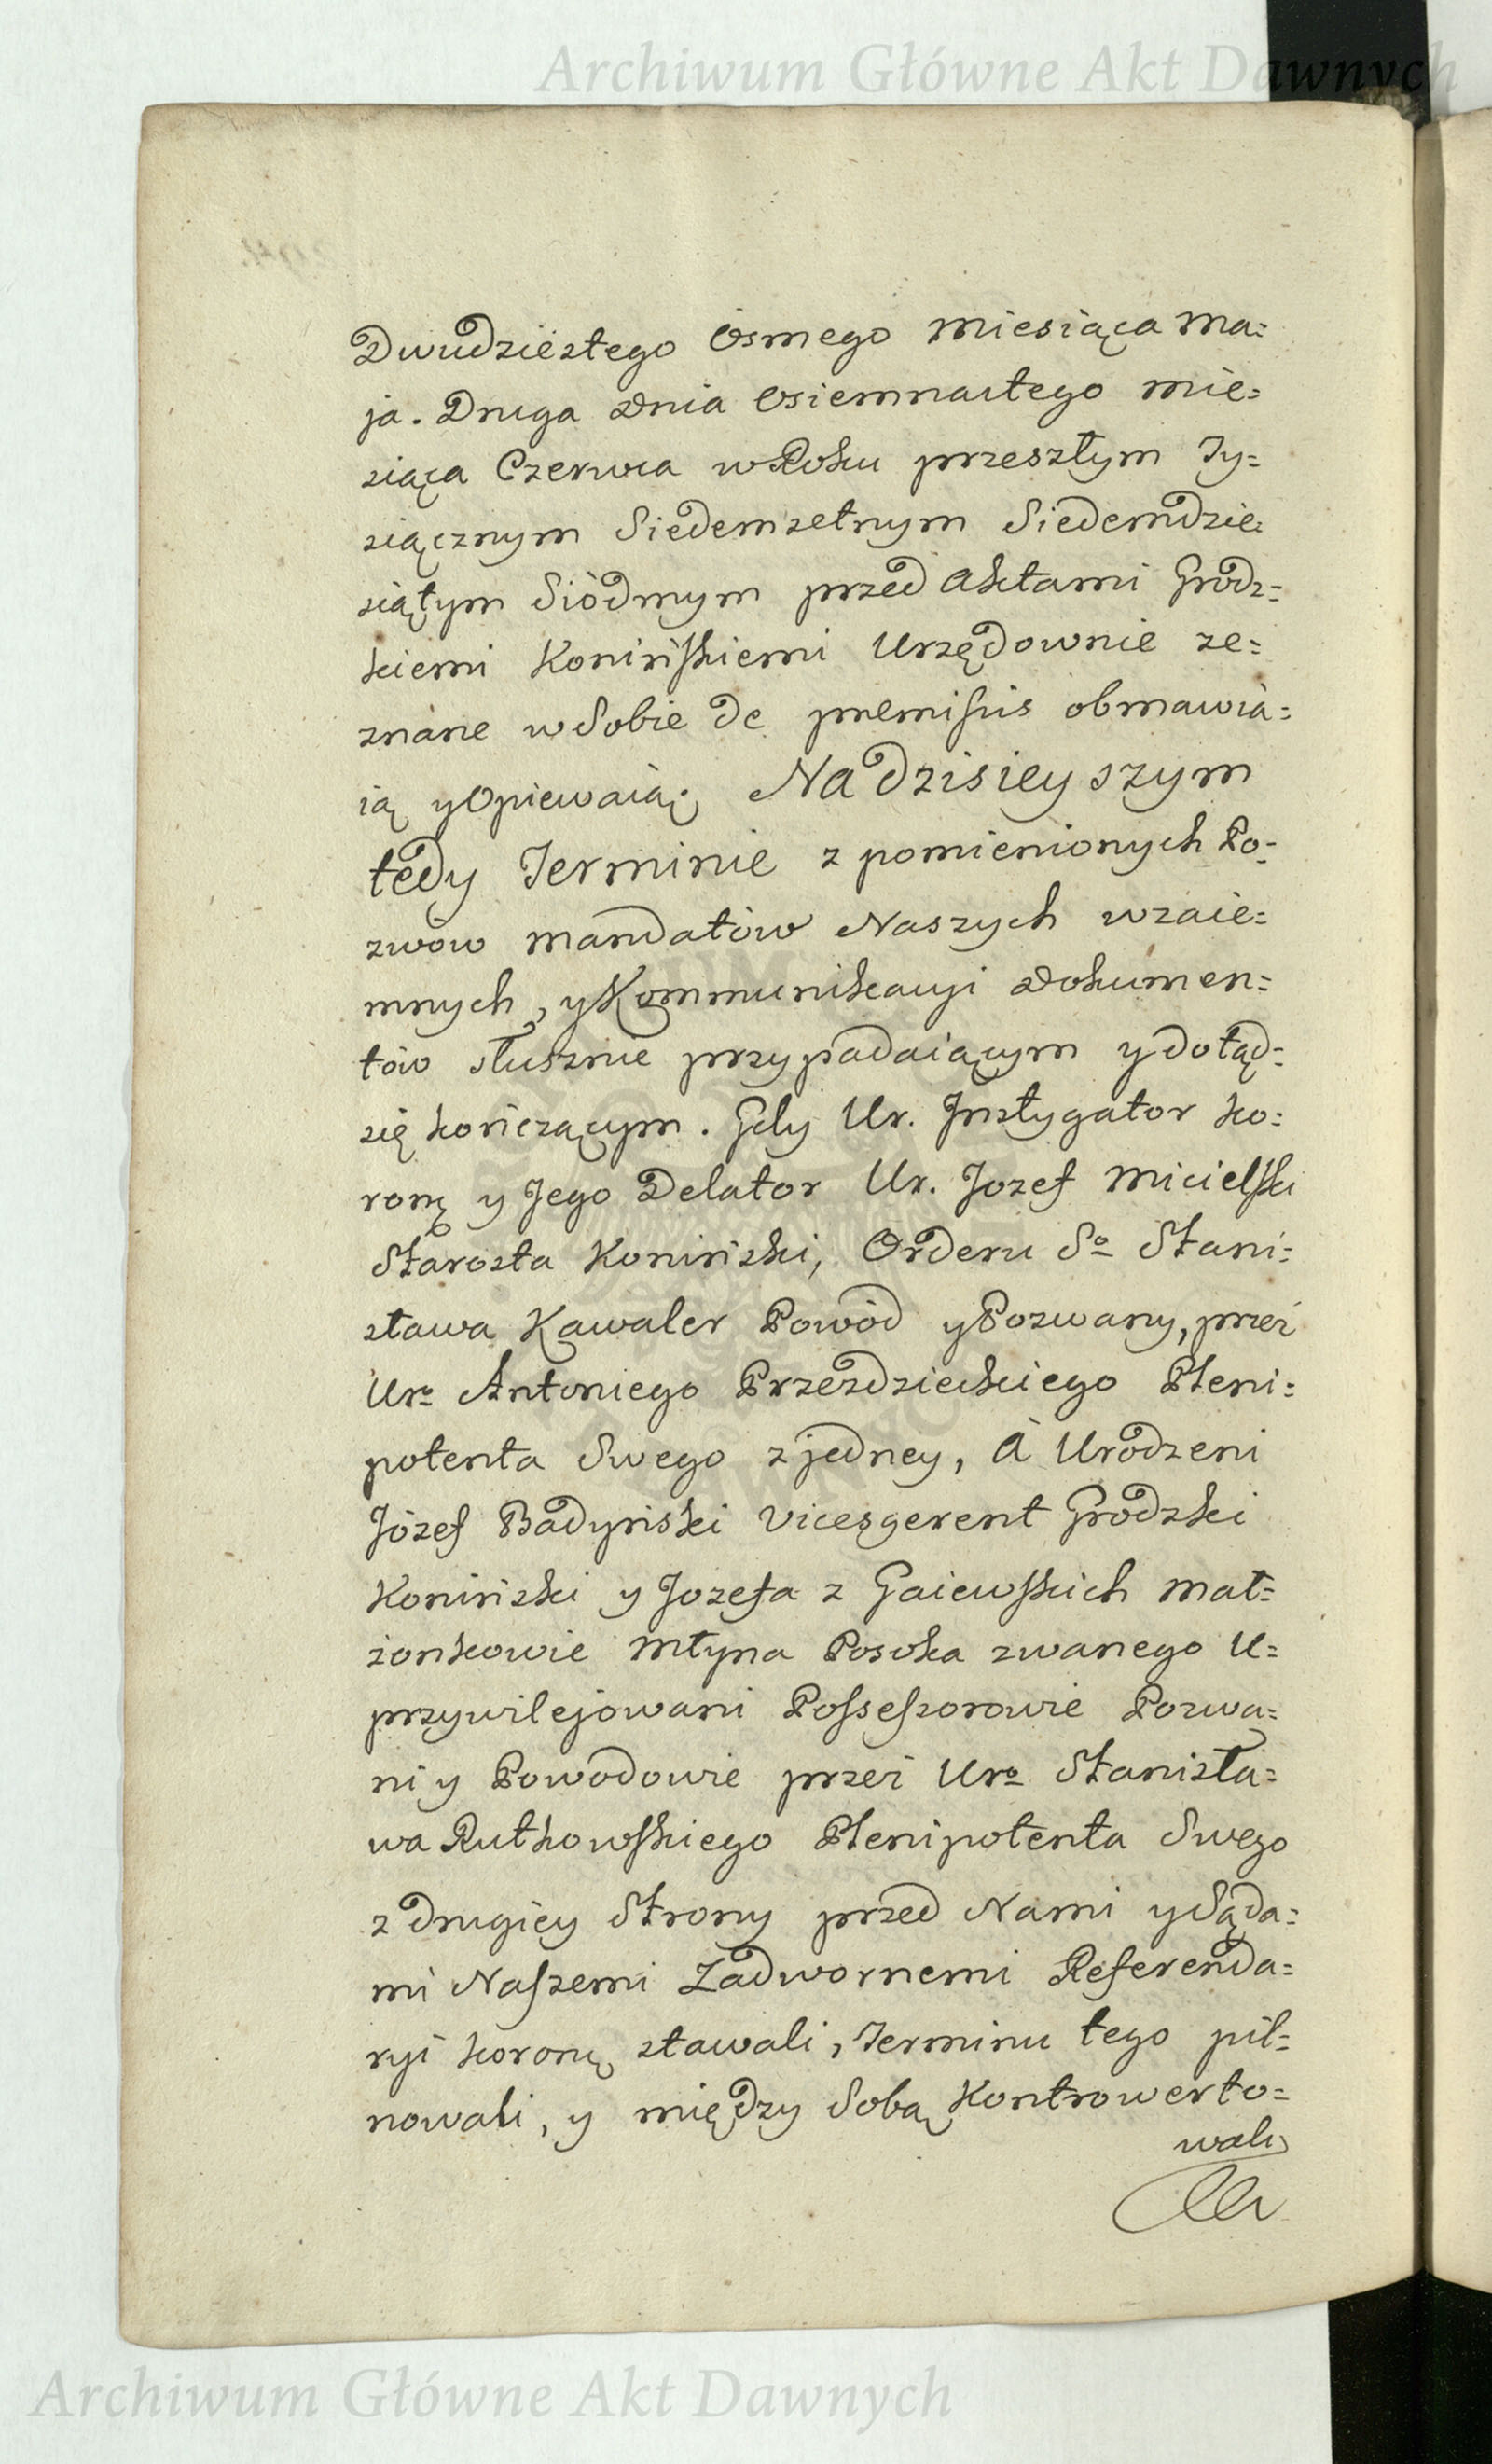 Archiwum Główne Akt Dawnych
Dwudziestego ósmego Miesiąca Ma=
ja. Druga Dnia Osiemnastego Mie=
siąca Czerwca w Roku przeszłym Ty=
siącznym Siedemsetnym Siedemdzie=
siątym Siódmym przed Aktami Grodz=
kiemi Konińskiemi Urzędownie ze=
znane w Sobie de premissis obmawia=
ią y Opiewaią; Na dzisieyszym
tedy Terminie z pomienionych Po=
zwów Mandatów Naszych wzaie=
mnych, y Kommunikacyi Dokumen=
tów słusznie przypadaiącym y dotąd=
się kończącym. Gdy Ur. Instygator Ko=
ronƺ y Jego Delator Ur. Jozef Micielski
Starosta Koniński, Orderu Sº Stani=
sława Kawaler Powód y Pozwany, przez
Urº Antoniego Przezdzieckiego Pleni=
potenta Swego z jedney, A Urodzeni
Józef Badyński Vicesgerent Grodzki
Koniński y Jozefa z Gaiewskich Mał=
żonkowie Młyna Posoka zwanego U=
przywilejowani Possessorowie Pozwa=
ni y Powodowie przez Urº Stanisła=
wa Rutkowskiego Plenipotenta Swego
z drugiey Strony przed Nami y Sąda=
mi Naszemi Zadwornemi Referenda=
ryi koronƺ stawali, Terminu tego pil=
nowali, y między Sobą Kontrowerto=
wali
Archiwum Główne Akt Dawnych